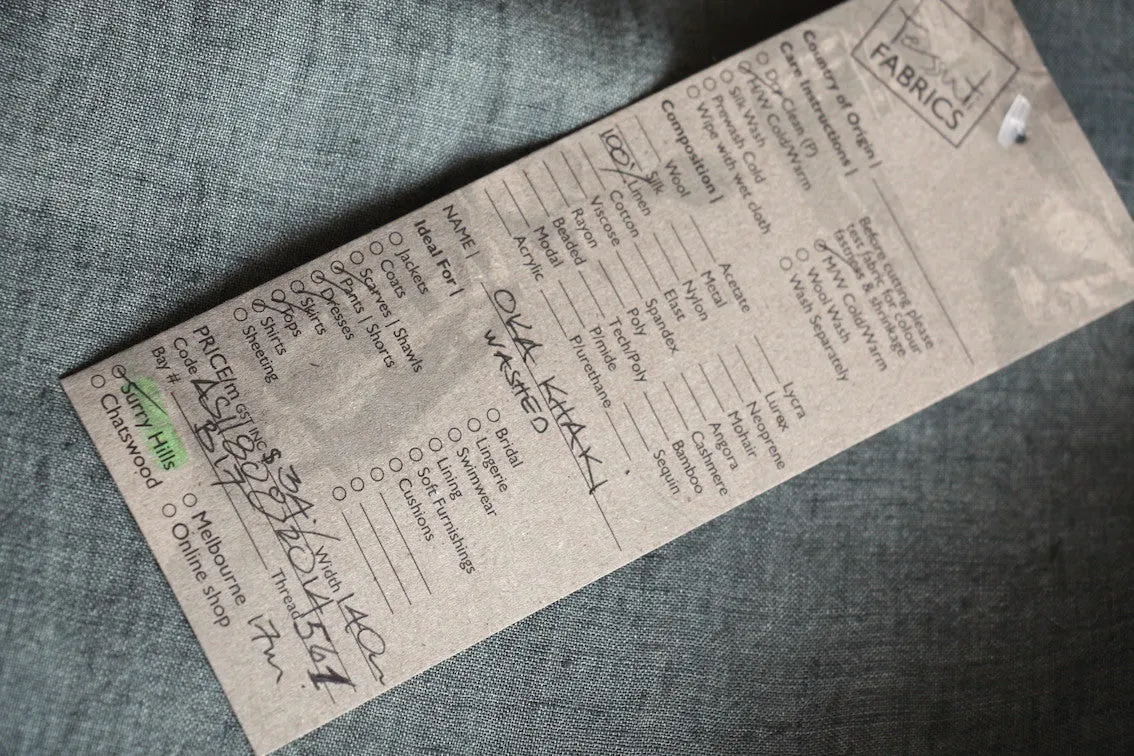 Tessuti
FABRICS
Country of Origin |
Care Instructions |
Dry Clean (P)
H/W Cold/Warm
Silk Wash
Prewash Cold
Wipe with wet cloth
Before cutting please
test fabric for colour
fastness & shrinkage
M/W Cold/Warm
Wool Wash
Wash Separately
Composition |
Silk
Wool
100% Linen
Cotton
Viscose
Rayon
Beaded
Modal
Acrylic
Acetate
Metal
Nylon
Elast
Spandex
Poly
Tech/Poly
P/mide
P/urethane
Lycra
Lurex
Neoprene
Mohair
Angora
Cashmere
Bamboo
Sequin
NAME | OKA KHAKI
WASHED
Ideal For |
Jackets
Coats
Scarves | Shawls
Pants | Shorts
Dresses
Skirts
Tops
Shirts
Sheeting
Bridal
Lingerie
Swimwear
Lining
Soft Furnishings
Cushions
PRICE/m GST INC $34. Width 140
Code
Bay #. B17 Thread 561
Surry Hills
Chatswood
Melbourne
Online shop
17m